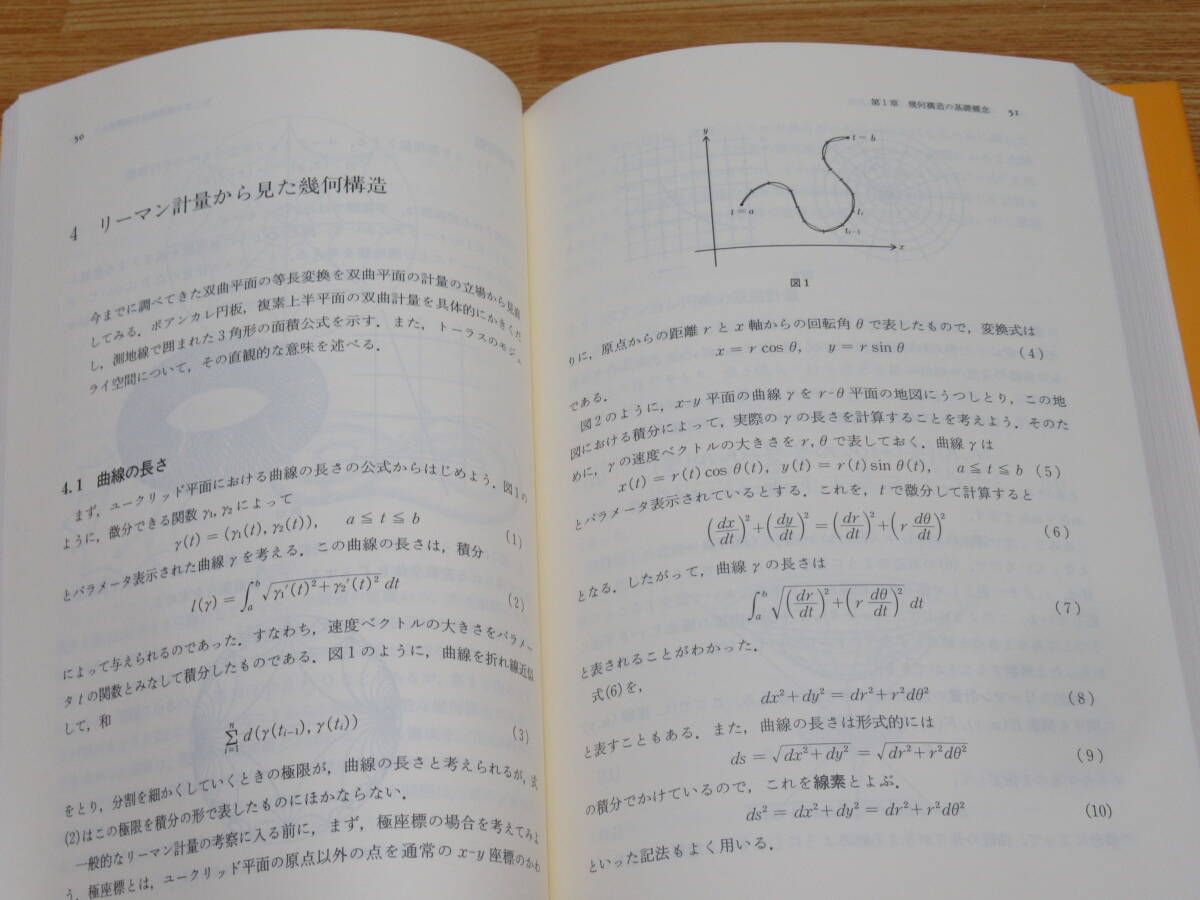 50
4 リーマン計量から見た幾何構造
今までに調べてきた双曲平面の等長変換を双曲平面の計量の立場から見直
してみる．ポアンカレ円板，複素上半平面の双曲計量を具体的にかきくだ
し，測地線で囲まれた3角形の面積公式を示す．また，トーラスのモジュ
ライ空間について，その直観的な意味を述べる．
4.1 曲線の長さ
まず，ユークリッド平面における曲線の長さの公式からはじめよう．図1の
ように，微分できる関数 γ₁, γ₂ によって
γ(t) = (γ₁(t), γ₂(t)), a ≦ t ≦ b (1)
とパラメータ表示された曲線 γ を考える．この曲線の長さは，積分
l(γ) = ∫ₐᵇ √(γ₁′(t)²+γ₂′(t)²) dt (2)
によって与えられるのであった．すなわち，速度ベクトルの大きさをパラメー
タ t の関数とみなして積分したものである．図1のように，曲線を折れ線近似
して，和
Σᵢ₌₁ⁿ d(γ(tᵢ₋₁), γ(tᵢ)) (3)
をとり，分割を細かくしていくときの極限が，曲線の長さと考えられるが，式
(2)はこの極限を積分の形で表したものにほかならない．
一般的なリーマン計量の考察に入る前に，まず，極座標の場合を考えてみよ
う．極座標とは，ユークリッド平面の原点以外の点を通常の x-y 座標のかわ
第1章 幾何構造の基礎概念 51
y
t=b
t=a
tᵢ
tᵢ₋₁
x
図1
りに，原点からの距離 r と x 軸からの回転角 θ で表したもので，変換式は
x = r cos θ, y = r sin θ (4)
である．
図2のように，x-y 平面の曲線 γ を r-θ 平面の地図にうつしとり，この地
図における積分によって，実際の γ の長さを計算することを考えよう．そのた
めに，γ の速度ベクトルの大きさを r, θ で表しておく．曲線 γ は
x(t) = r(t) cos θ(t), y(t) = r(t) sin θ(t), a ≦ t ≦ b (5)
とパラメータ表示されているとする．これを，t で微分して計算すると
(dx/dt)²+(dy/dt)² = (dr/dt)²+(r dθ/dt)² (6)
となる．したがって，曲線 γ の長さは
∫ₐᵇ √((dr/dt)²+(r dθ/dt)²) dt (7)
と表されることがわかった．
式(6)を，
dx²+dy² = dr²+r²dθ² (8)
と表すこともある．また，曲線の長さは形式的には
ds = √(dx²+dy²) = √(dr²+r²dθ²) (9)
の積分でかけているので，これを線素とよぶ．
ds² = dx²+dy² = dr²+r²dθ² (10)
といった記法もよく用いる．